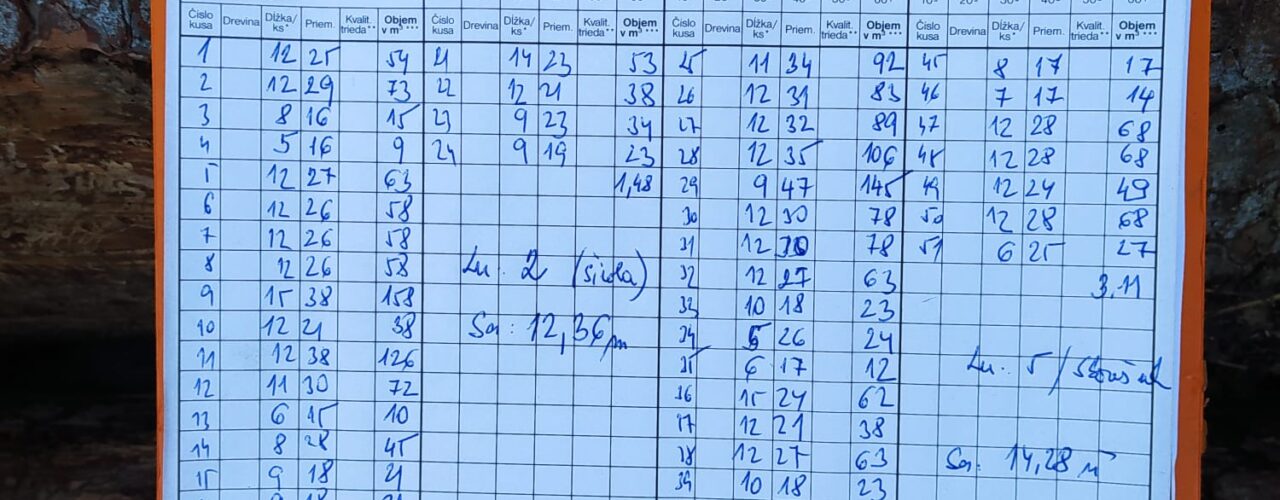 Číslo kusa Drevina Dĺžka/ ks* Priem. Kvalit. trieda** Objem v m³ *** Číslo kusa Drevina Dĺžka/ ks* Priem. Kvalit. trieda** Objem v m³ *** Číslo kusa Drevina Dĺžka/ ks* Priem. Kvalit. trieda** Objem v m³ *** Číslo kusa Drevina Dĺžka/ ks* Priem. Kvalit. trieda** Objem v m³ ***
1 12 25 54 21 14 23 53 25 11 34 92 45 8 17 17
2 12 29 73 22 12 21 38 26 12 31 83 46 7 17 14
3 8 16 15 23 9 23 34 27 12 32 89 47 12 28 68
4 5 16 9 24 9 19 23 28 12 35 106 48 12 28 68
5 12 27 63 1,48 29 9 47 145 49 12 24 49
6 12 26 58 30 12 30 78 50 12 28 68
7 12 26 58 31 12 30 78 51 6 25 27
8 12 26 58 2 32 12 27 63 3,11
9 15 38 158 33 10 18 23
10 12 21 38 12,36 34 5 26 24
11 12 38 126 35 6 17 12 5/
12 11 30 72 36 15 24 62
13 6 15 10 37 12 21 38
14 8 28 45 38 12 27 63 14,28
15 9 18 21 39 10 18 23